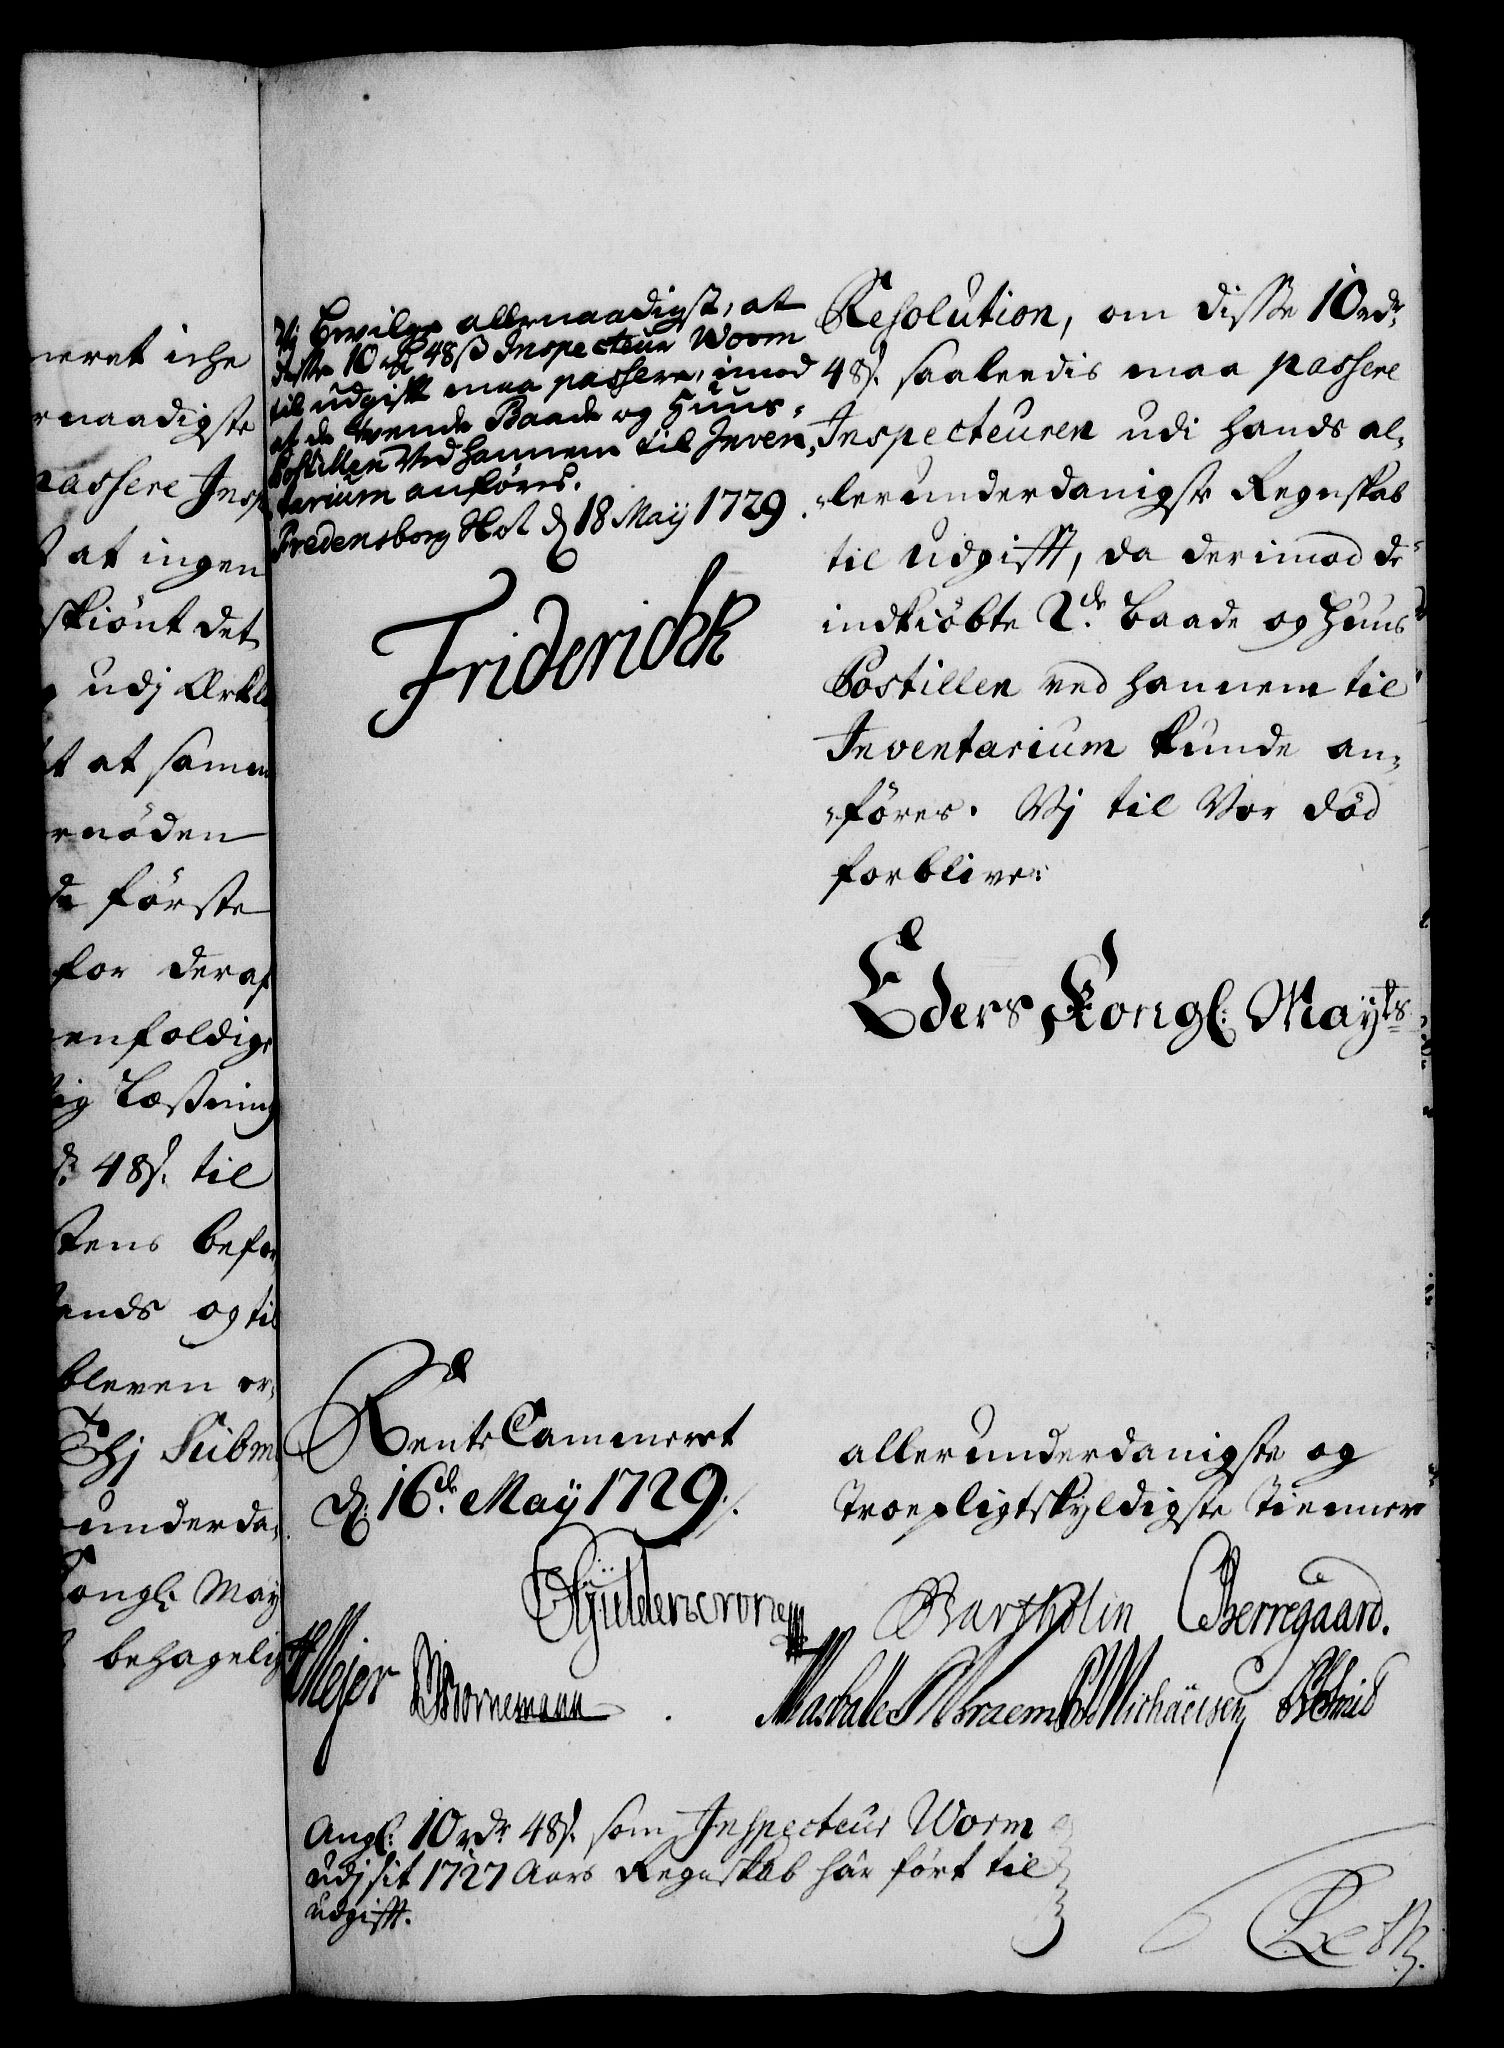 neret iche
rnaadigste
passere Insp
at ingen
skiönt det
udj Ørkl
t at samm
rnöden
de förste
for deraf
enfoldigs
ig Læssning
48s. til
stens befor
ends og til
bleven er,
Thj Subm
underda,
Kongl: May
behagelig
Vj bevilge allernaadigst, at
disse 10 rd 48 ß Inspecteur Worm
til udgift maa passere, imod
at de tvende Baade og Huus,
Postillen ved hannem til Inven,
tarium anföres.
Fredensborg Slot d 18 May 1729.
Friderich R
Resolution, om disse 10 rdr
48s. saaledis maa passere
Inspecteuren udi hands al,
lerunderdanigste Regnskab
til udgifft, da derimod de
indkiöbte 2de Baade og Huus
Postillen ved hannem til
Inventarium kunde an,
föres. Vj til Vor död
forbliver
Eders Kongl: Mayts
Rente Cammeret
d: 16de May 1729.
allerunderdanigste og
Troepligtskyldigste Tienner
Gyldencrone Bartholin Berregaard.
Mejer Bornemann Michäelsen
Angl: 10 rdr 48s. som Inspecteur Worm
udj sit 1727 Aars Regnskab har fört til
udgifft.